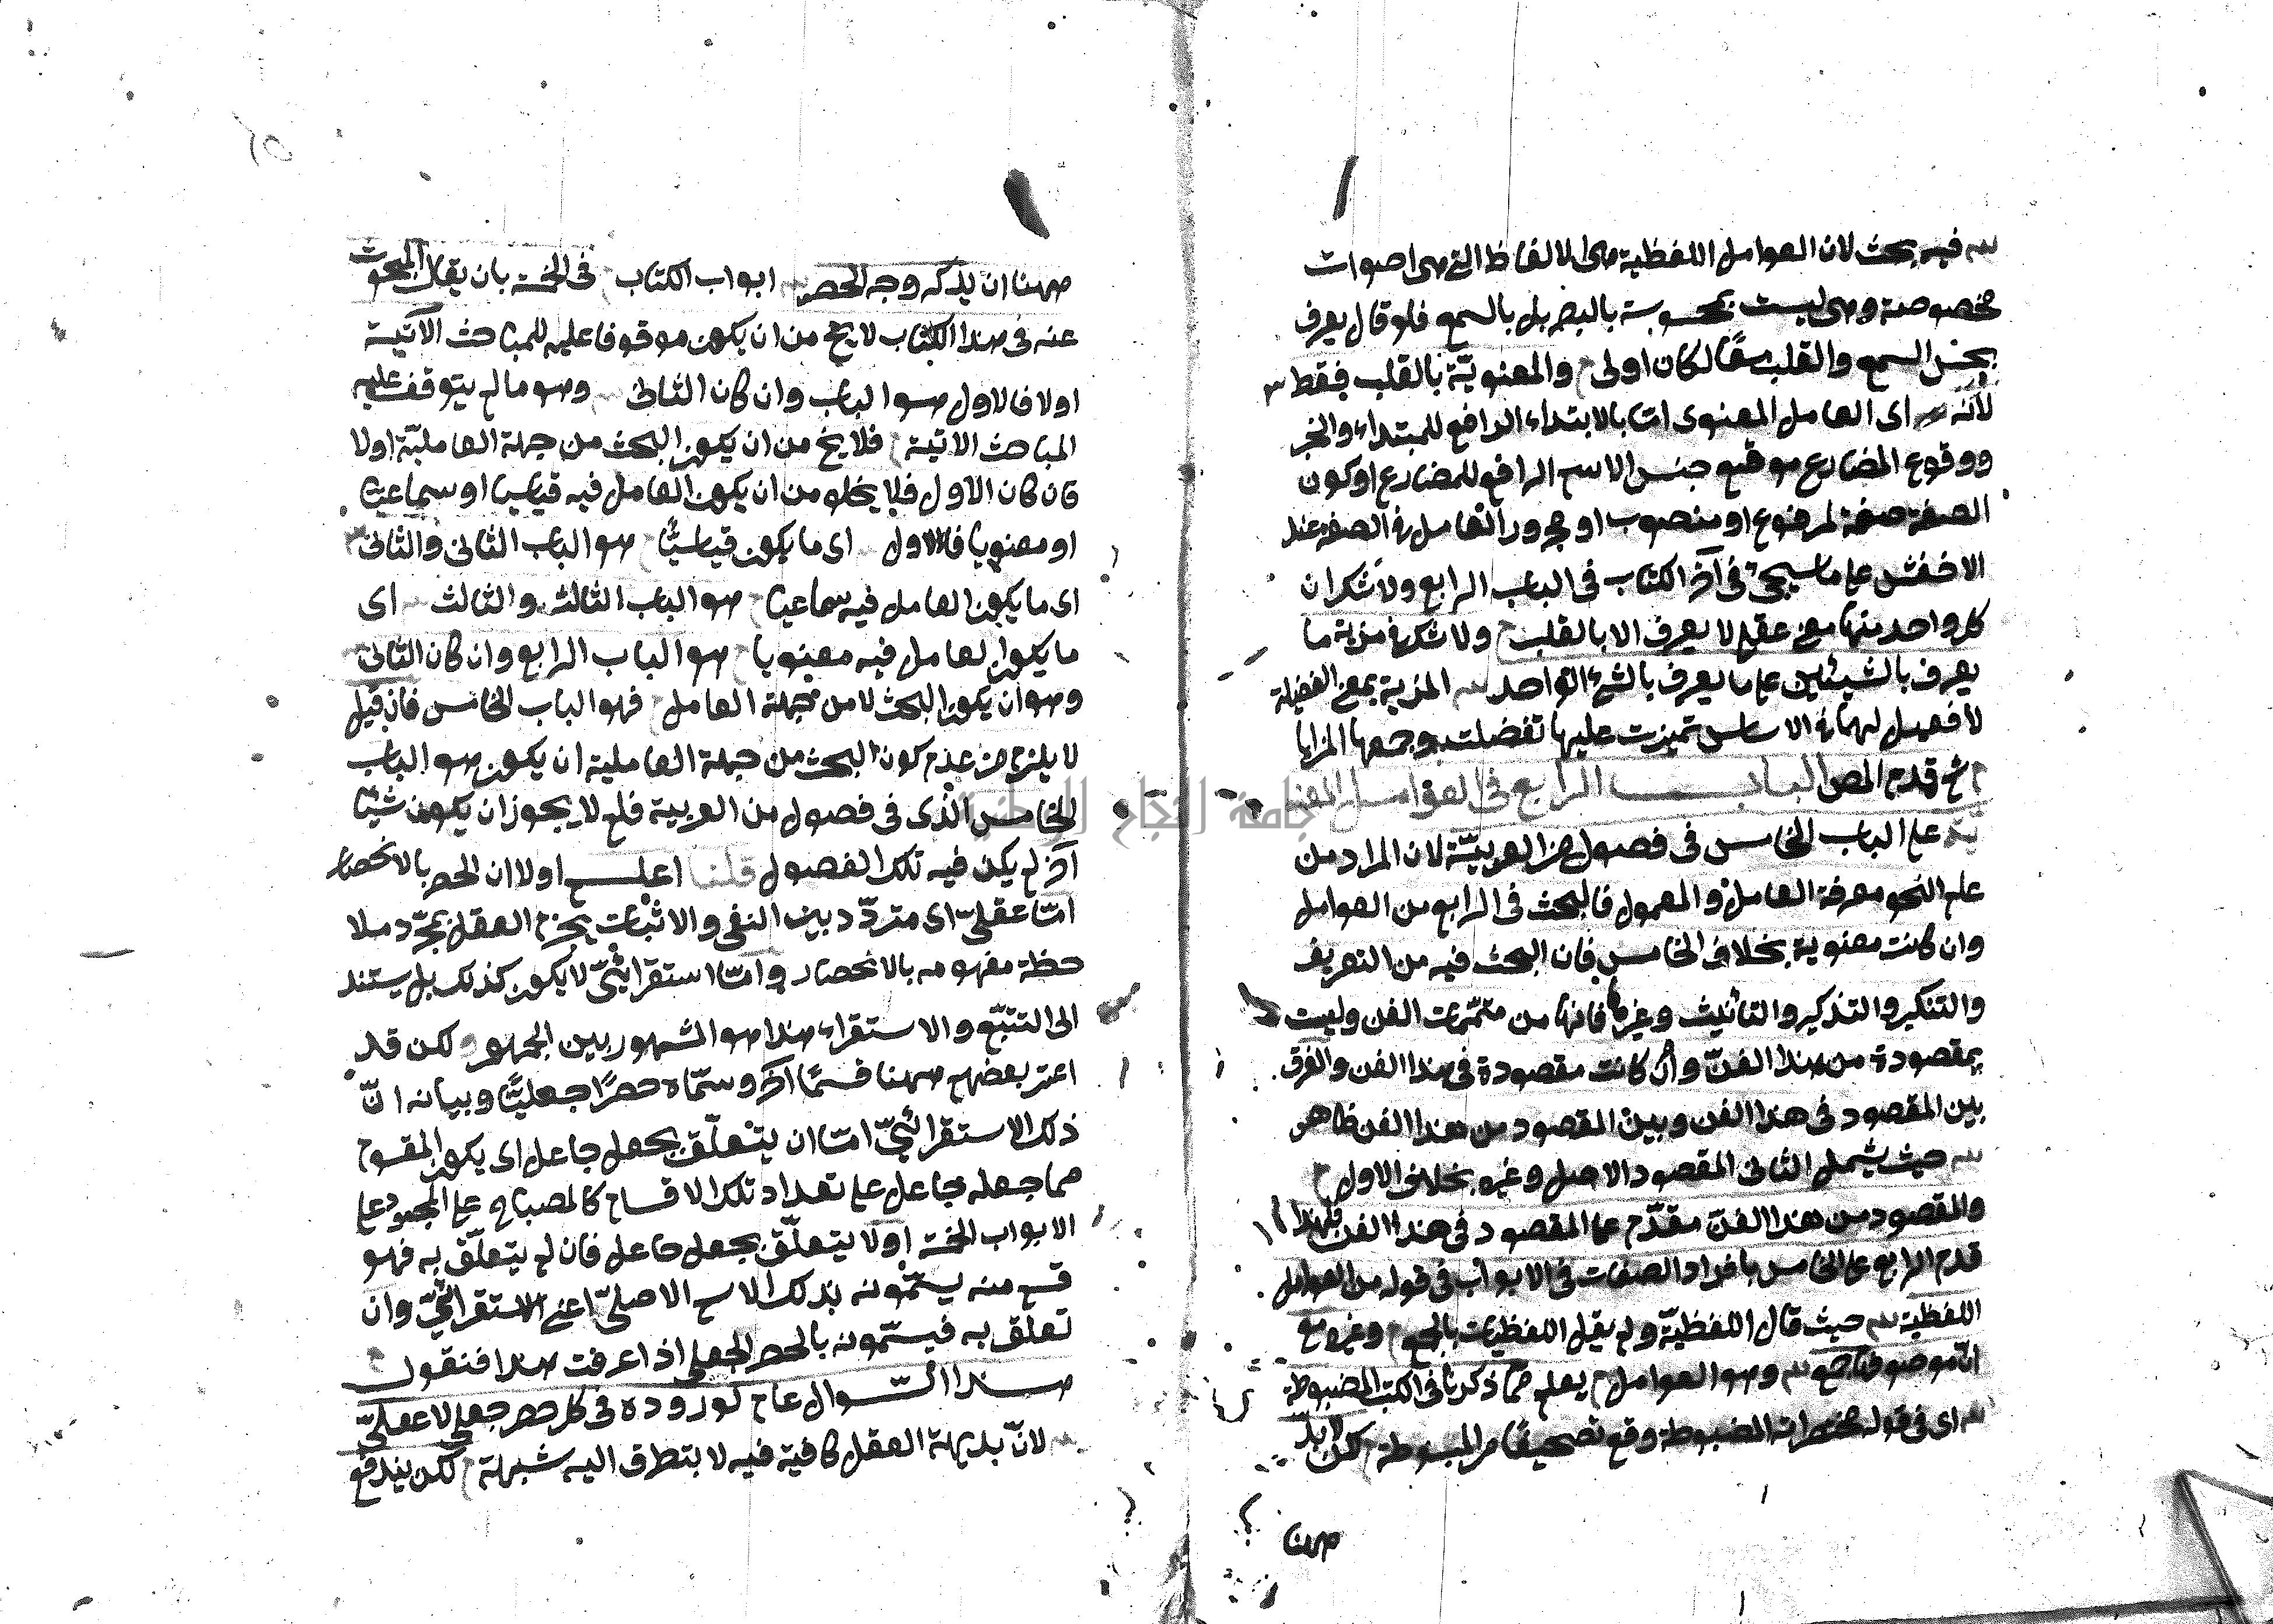 فيه بحث لان العوامل اللفظية هى الالفاظ التى هى اصوات
مخصوصة وهى ليست بمحسوسة بالبصر بل بالسمع فلو قال يعرف
بحسّ السمع والقلب معًا لكان اولى والمعنويّة بالقلب فقط
لأنّه اى العامل المعنوى امّا بالابتداء الرافع للمبتداء والخبر
ووقوع المضارع موقع جنس الاسم الرافع للمضارع او كون
الصفة صفة لمرفوع او منصوب او مجرور العامل فى الصفة عند
الاخفش على ما سيجئ فى آخر الكتاب فى الباب الرابع ولا شك ان
كل واحد منها معنى عقلى لا يعرف الا بالقلب ولا شك فى مزية ما
يعرف بالشيئين على ما يعرف بالشئ الواحد المزية بمعنى الفضيلة
لا فعل لها فى الاساس تميزت عليها تفضلت وجمعها المزايا
ثم قدم المص الباب الرابع فى العوامل المعنو
ية على الباب الخامس فى فصول من العربيّة لان المراد من
علم النحو معرفة العامل والمعمول فالبحث فى الرابع من العوامل
وان كانت معنوية بخلاف الخامس فان البحث فيه من التعريف
والتنكير والتذكير والتأنيث وغيرها فانها من متمّمات الفن وليست
بمقصودة من هذا الفنّ وان كانت مقصودة فى هذا الفن والفرق
بين المقصود فى هذا الفن وبين المقصود من هذا الفن ظاهر
حيث يشمل الثانى المقصود الاصل وغيره بخلاف الاول
والمقصود من هذا الفنّ مقدّم على المقصود فى هذا الفن فلهذا
قدم الرابع على الخامس بافراد الصفات فى الابواب فى قوله من العوامل
اللفظية حيث قال اللفظيّة ولم يقل اللفظيات بالجمع وغيره مع
انّ موصوفها جمع وهو العوامل يعلم ممّا ذكرنا فى الكتب المضبوطة
اى فى قوله مختصراته المضبوطة وقع تصحيفًا من المبسوطة لكن لا بدّ
ههنا
ههنا ان يذكر وجه الحصر ابواب الكتاب فى الخمسة بان يقال المبحوث
عنه فى هذا الكتاب لا يخ من ان يكون موقوفا عليه للمباحث الآتية
اولا فالاول هو الباب وان كان الثانى وهو ما لم يتوقف عليه
المباحث الاتية فلا يخ من ان يكون البحث من جهة العاملية اولا
فان كان الاول فلا يخلو من ان يكون العامل فيه قياسيا او سماعيا
او معنويا فالاول اى ما يكون قياسيًّا هو الباب الثانى والثانى
اى ما يكون العامل فيه سماعيا هو الباب الثالث والثالث اى
ما يكون العامل فيه معنويا هو الباب الرابع وان كان الثانى
وهو ان يكون البحث لا من جهة العامل فهو الباب الخامس فان قيل
لا يلزم من عدم كون البحث من جهة العاملية ان يكون هو الباب
الخامس الذى فى فصول من العربية فلم لا يجوز ان يكون شيئا
آخر لم يكن فيه تلك الفصول قلنا اعلم اولا ان الحصر بالانحصار
امّا عقلىّ اى متردّد بين النفى والاثبات يجزم العقل بمجرّد ملا
حظة مفهومه بالانحصار وامّا استقرائىّ لا يكون كذلك بل يستند
الى التتبّع والاستقراء هذا هو المشهور بين الجمهور ولكن قد
اعتبر بعضهم ههنا قسمًا آخر وسمّاه حصرًا جعليًّا وبيانه انّ
ذلك الاستقرائىّ امّا ان يتعلّق بجعل جاعل اى يكون المقسوم
مما جعله جاعل على تعداد تلك الاقسام كالمصباح على المجعود على
الابواب الخمسة اولا يتعلّق بجعل جاعل فان لم يتعلّق به فهو
قسم منه يسمّونه بذلك الاسم الاصلىّ اعنى الاستقرائىّ وان
تعلق به فيسمّونه بالحصر الجعلى اذا عرفت هذا فنقول
هذا السّوال عام لوروده فى كل حصر جعلى لا عقلىّ
لانّ بديهة العقل كافية فيه لا يتطرق اليه شبهة لكن يندفع
جامعة النجاح الوطنية